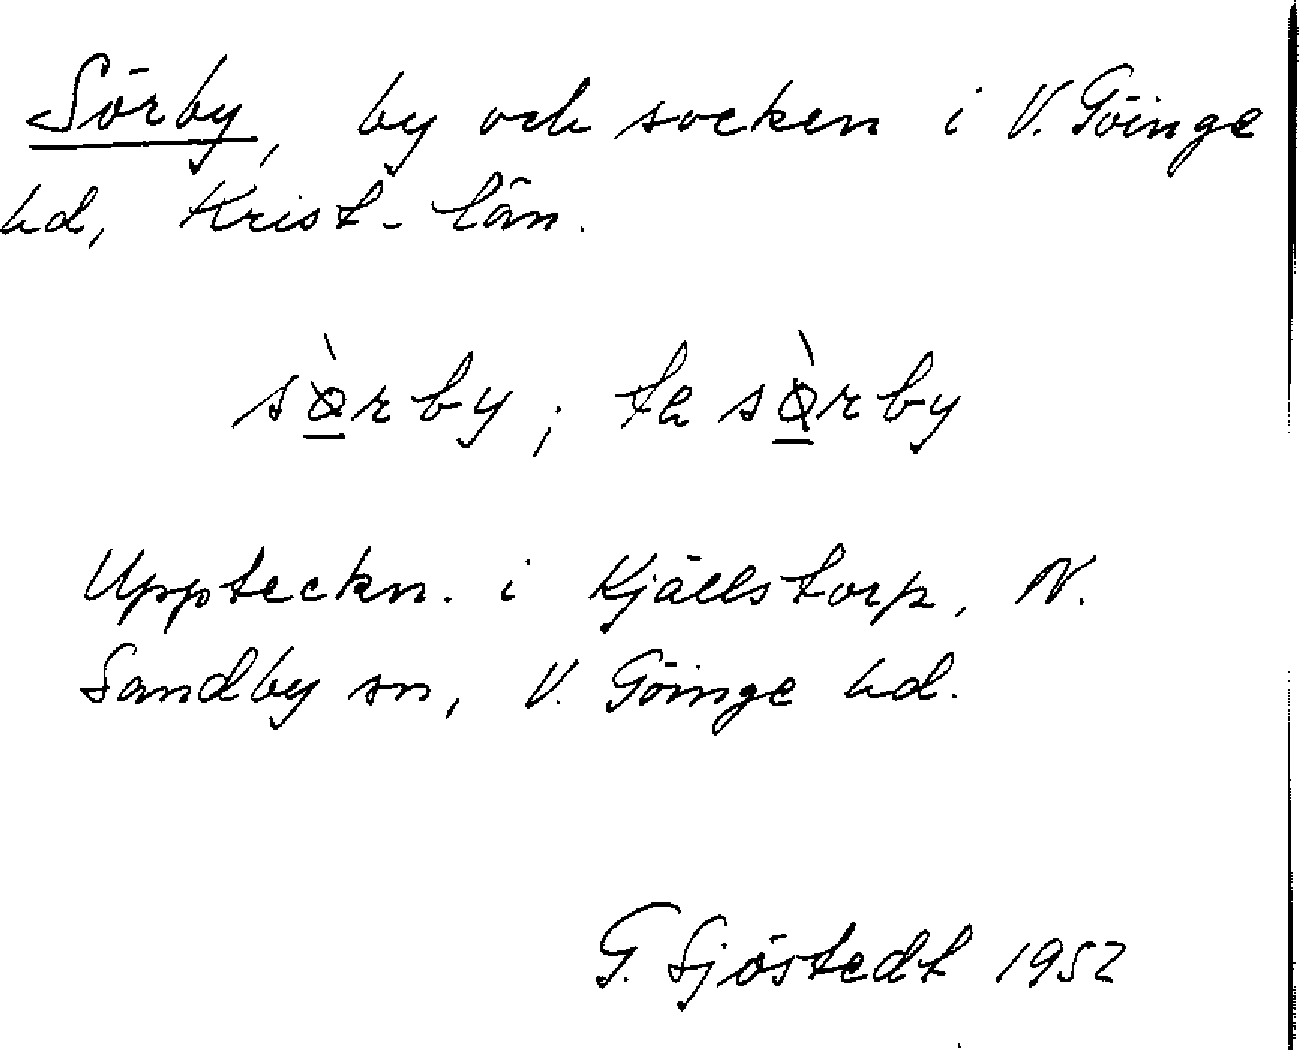 Sörby, by och socken i V. Göinge
hd, Krist- län.
sø̱̀rby; te sø̱̀rby
Uppteckn. i Kjällstorp, N.
Sandby sn, V. Göinge hd.
G. Sjöstedt 1952